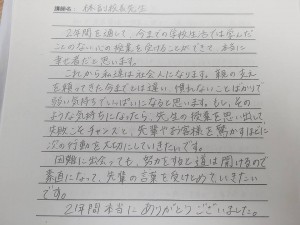 講師名:
2年間を通して、今までの学校生活では学んだ
ことのない心の授業を受けることができて、本当に
幸せ者だと思います。
これから私達は社会人になります。親の支え
を頼ってきた今までとは違い、慣れないことばかりで
弱い気持ちでいっぱいになると思います。もし、その
ような気持ちになったら、先生の授業を思い出して
失敗こそチャンスと、先輩やお客様を驚かすほどに
次の行動を大切にしていきたいです。
困難に出会っても、努力をすると道は開けるので
素直になって、先輩の言葉を受けとめていきたい
です。
2年間本当にありがとうございました。